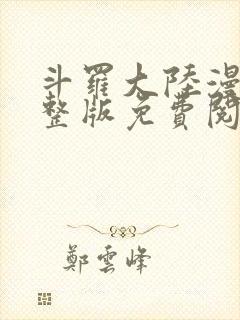 斗羅大陸漫
整版免費閱
鄭雲峰